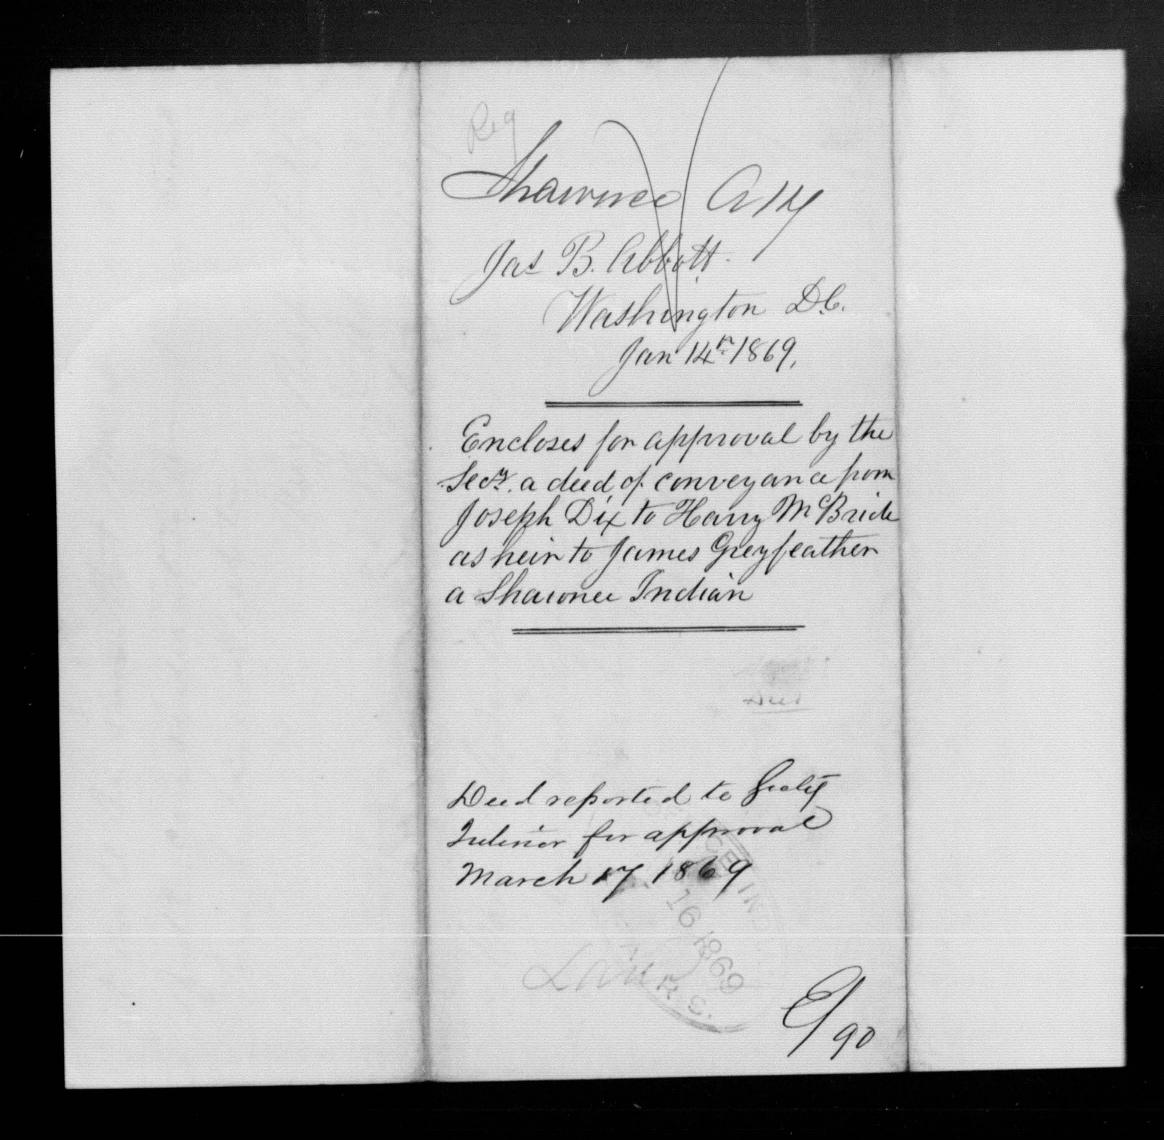 Reg
Shawnee A 14
Jas B. Abbott.
Washington D.C.
Jan 14th 1869.
Encloses for approval by the
Secy. a deed of conveyance from
Joseph Dix to Harry McBride
as heir to James Greyfeather
a Shawnee Indian
Deed
Deed reported to Secty
Interior for approval
March 17 1869
16 1869
Land
E/90